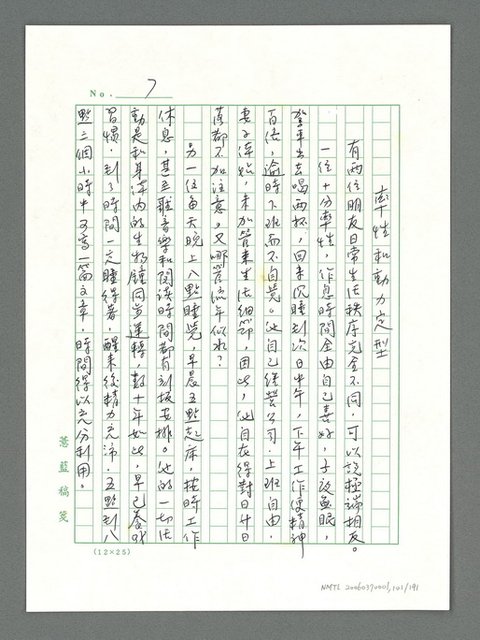 No. 7
率性和動力定型
有兩位朋友日常生活秩序完全不同，可以說極端相反。
一位十分率性，作息時間全由自己喜好，子夜無眠，
登車出去喝兩杯，回來沉睡到次日中午，下午工作便精神
百倍，逾時下班而不自覺。他自己經營公司，上班自由，
妻子
未加管束生活細節，因此，他自在得對日升日
落都不加注意，又哪管流年似水？
另一位每天晚上八點睡覺，早晨五點起床，按時工作
休息，甚至聽音樂和閱讀時間都有刻板安排。他的一切活
動是和身體內的生物鐘同步運轉，數十年如此，早已養成
習慣，到了時間一定睡得著，醒來後精力充沛，五點到八
點三個小時中可寫一篇文章，時間得以充分利用。
薔藍稿箋
(12×25)
NMTL 20060390001, 101/191